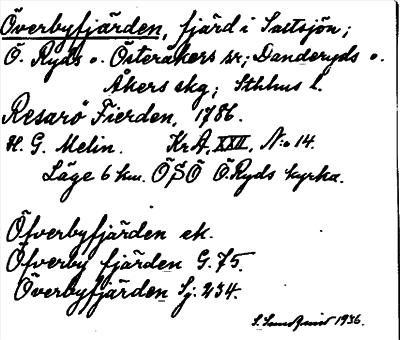 Överbyfjärden, fjärd i Saltsjön;
Ö. Ryds o. Österåkers sr; Danderyds o.
Åkers skg; Sthlms l.
Resarö Fierden, 1786.
H. G. Melin. KrA, XXII, N:o 14.
Läge 6 km. ÖSÖ Ö. Ryds kyrka.
Öfverbyfjärden ek.
Öfverby fjärden G. 75.
Överbyfjärden Sj. 234.
S. 1936.